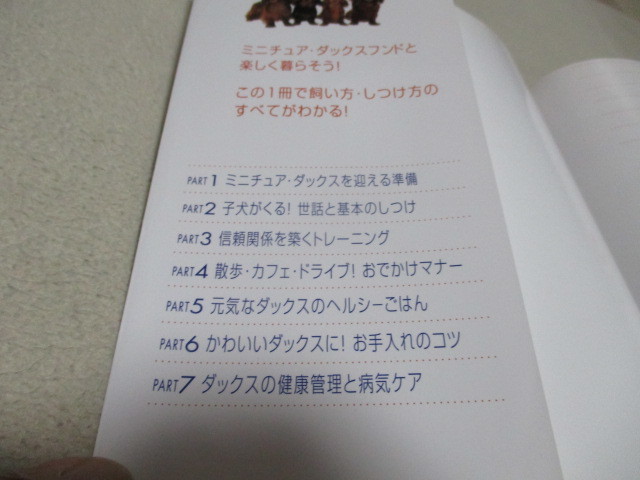 ミニチュア・ダックスフンドと
楽しく暮らそう!
この1冊で飼い方・しつけ方の
すべてがわかる!
PART1 ミニチュア・ダックスを迎える準備
PART2 子犬がくる! 世話と基本のしつけ
PART3 信頼関係を築くトレーニング
PART4 散歩・カフェ・ドライブ! おでかけマナー
PART5 元気なダックスのヘルシーごはん
PART6 かわいいダックスに! お手入れのコツ
PART7 ダックスの健康管理と病気ケア